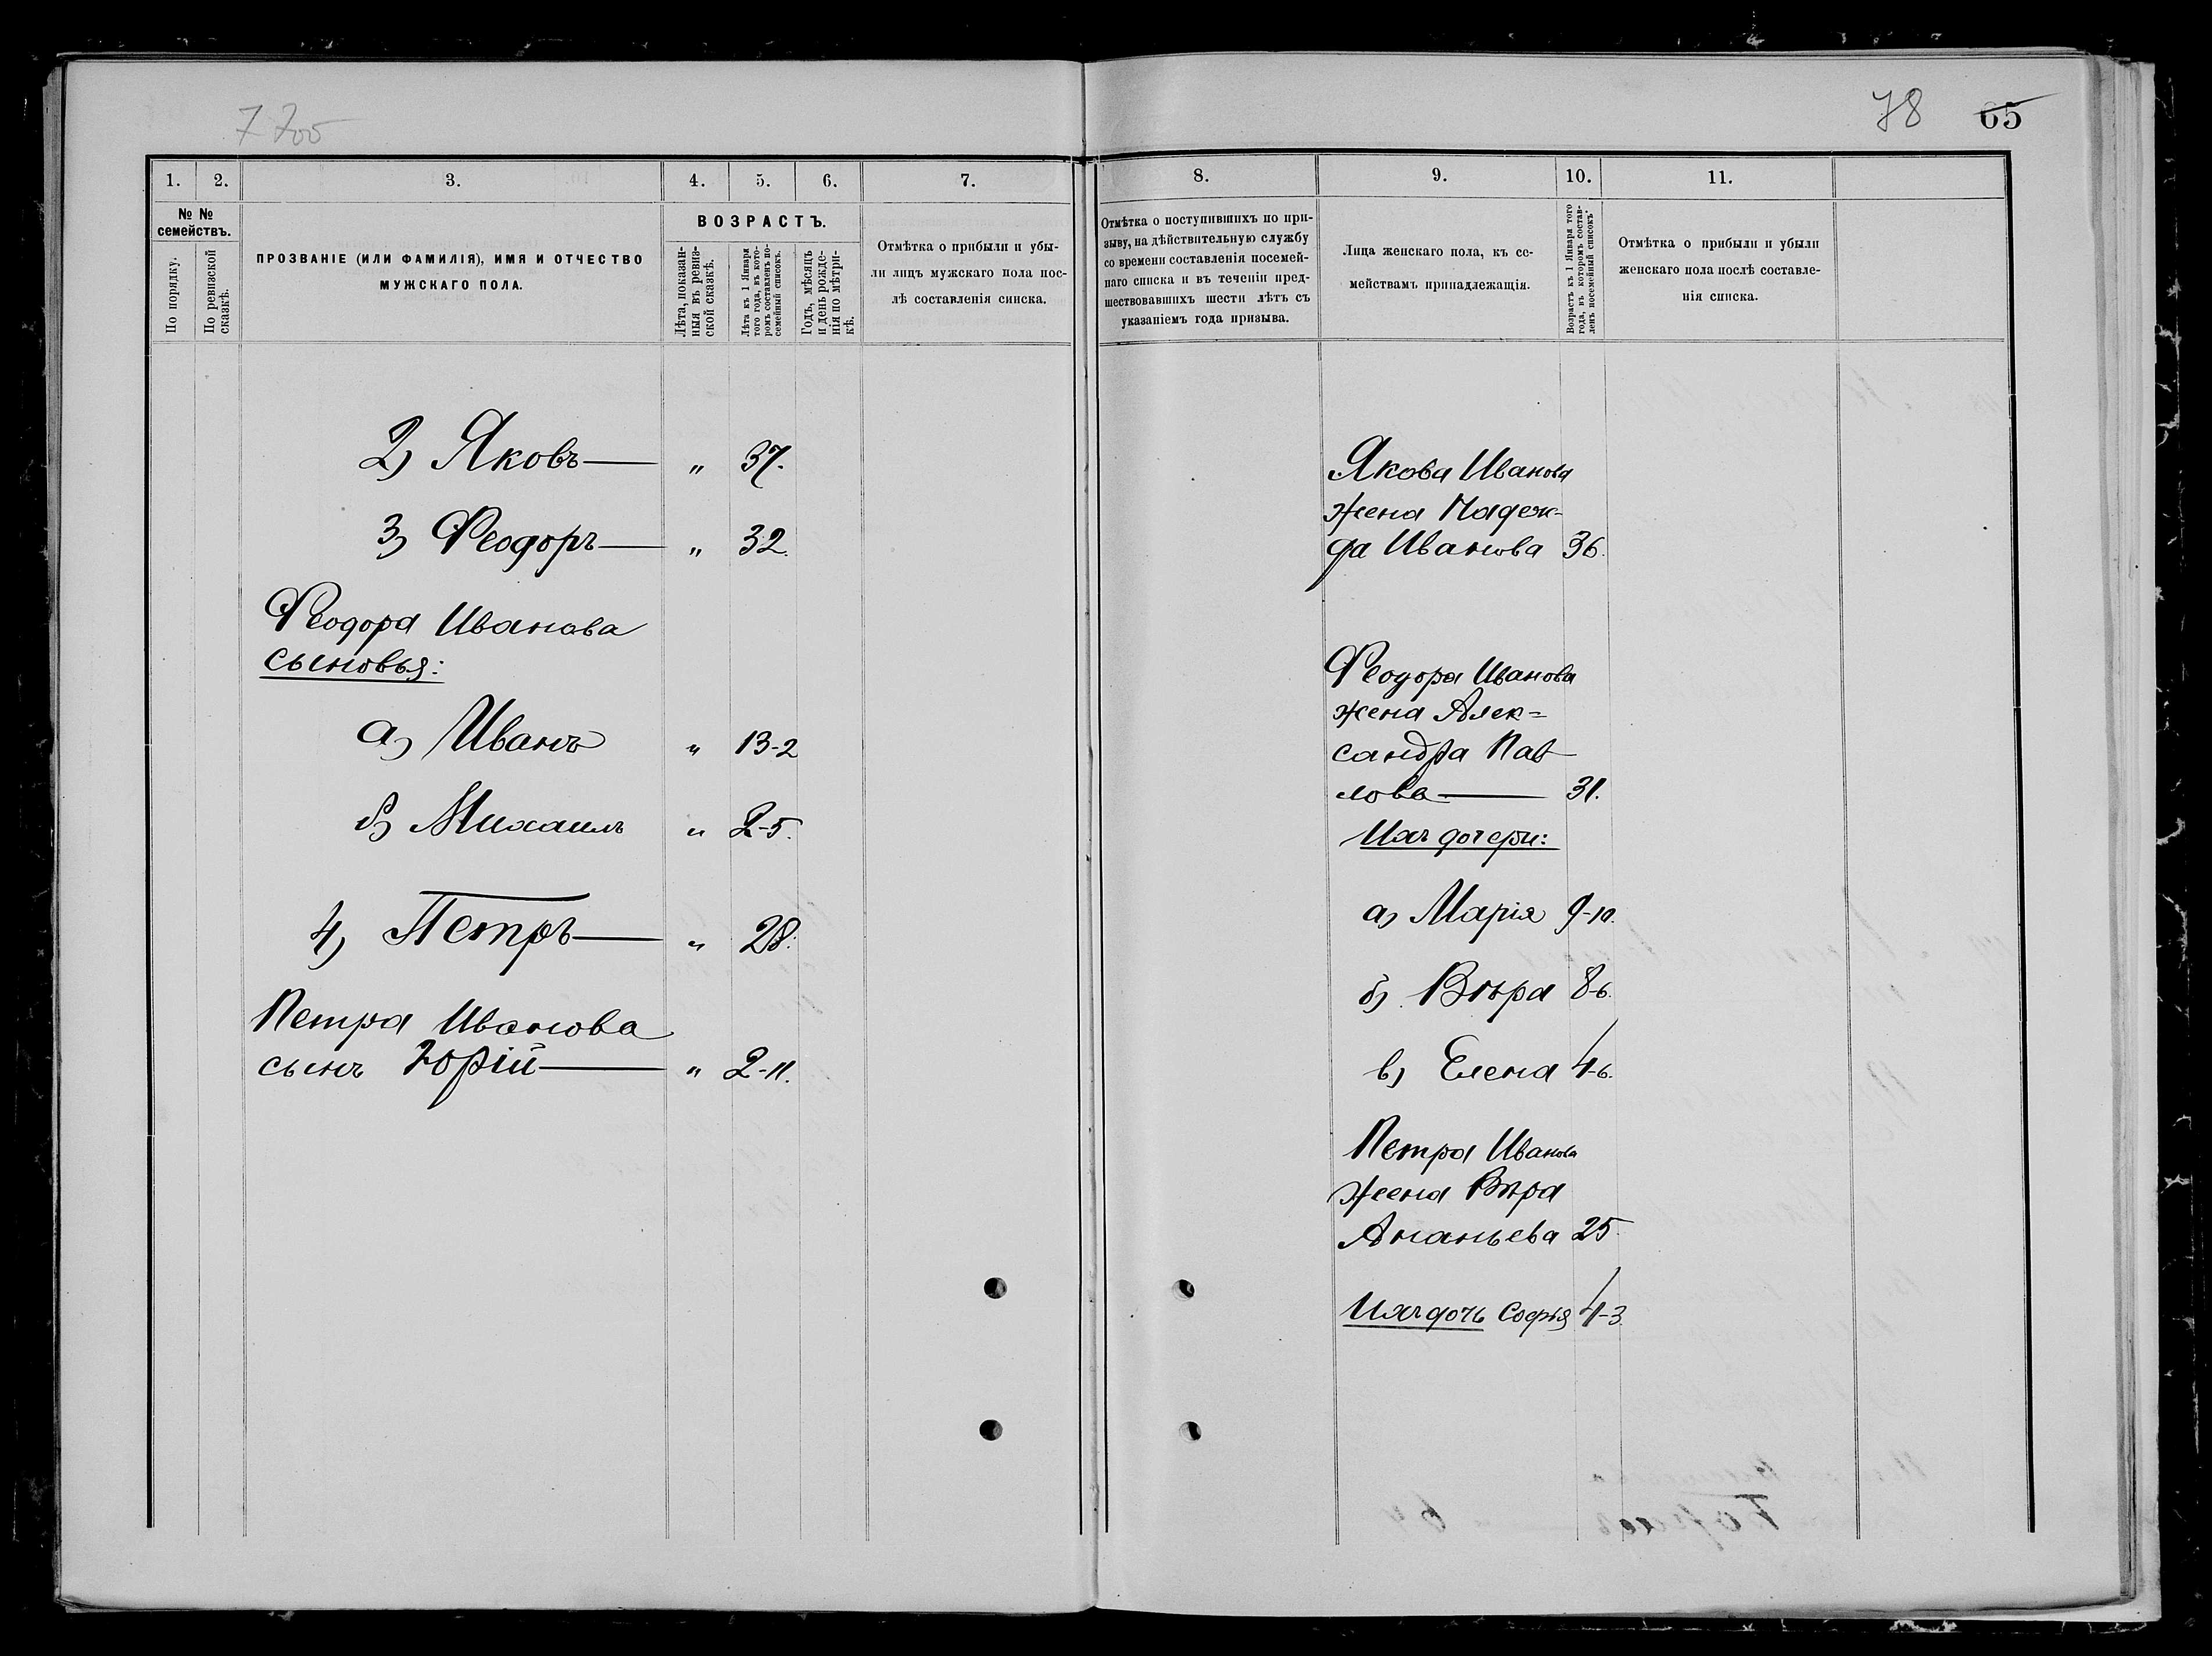 7 700
1. 2. 3. 4. 5. 6. 7.
№ №
семействъ.
По порядку.
По ревизской
сказкѣ.
ПРОЗВАНІЕ (ИЛИ ФАМИЛІЯ), ИМЯ И ОТЧЕСТВО
МУЖСКАГО ПОЛА.
ВОЗРАСТЪ.
Лѣта, показан-
ныя въ ревиз-
ской сказкѣ.
Лѣта къ 1 Января
того года, въ кото-
ромъ составленъ по-
семейный списокъ.
Годъ, мѣсяцъ
и день рожде-
нія по метри-
кѣ.
Отмѣтка о прибыли и убы-
ли лицъ мужскаго пола пос-
лѣ составленія списка.
2) Яковъ — " 37.
3) Феодоръ — " 32.
Феодора Иванова
сыновья:
а) Иванъ " 13-2
б) Михаилъ " 2-5.
4) Петръ — " 28.
Петра Иванова
сынъ Юрій — " 2-11.
78 65
8. 9. 10. 11.
Отмѣтка о поступившихъ по при-
зыву, на дѣйствительную службу
со времени составленія посемей-
наго списка и въ теченіи пред-
шествовавшихъ шести лѣтъ съ
указаніемъ года призыва.
Лица женскаго пола, къ се-
мействамъ принадлежащія.
Возрастъ къ 1 Января того
года, въ которомъ состав-
ленъ посемейный списокъ.
Отмѣтка о прибыли и убыли
женскаго пола послѣ составле-
нія списка.
Якова Иванова
жена Надеж-
да Иванова 36.
Феодора Иванова
жена Алек=
сандра Пав
лова — 31.
Ихъ дочери:
а) Марія 9-10.
б) Вѣра 8-6.
в) Елена 4-6.
Петра Иванова
жена Вѣра
Ананьева 25.
Ихъ дочь Софья 4-3.